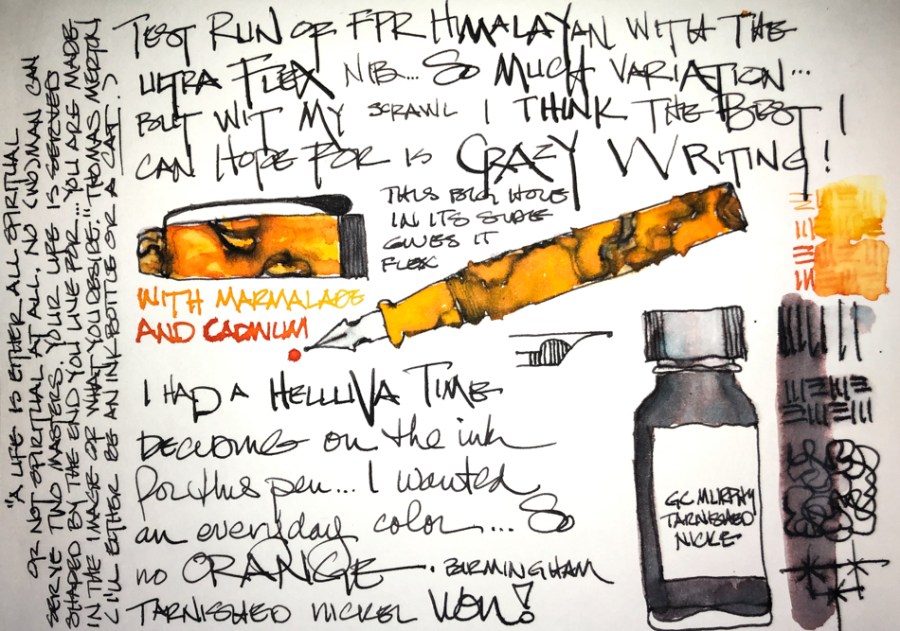 TEST RUN OF FPR HIMALAYAN WITH THE
ULTRA FLEX NIB... SO MUCH VARIATION...
BUT WIT MY SCRAWL I THINK THE BEST I
CAN HOPE FOR IS CRAZY WRITING!
THIS BIG HOLE
IN ITS SIDE
GIVES IT
FLEX
WITH MARMALADE
AND CADMIUM
I HAD A HELLUVA TIME
DECIDING on the ink
for this pen... I wanted
an everyday color... So
no ORANGE. BIRMINGHAM
TARNISHED NICKEL WON!
GC MURPHY
TARNISHED
NICKLE
"A LIFE IS EITHER ALL SPIRITUAL
OR NOT SPIRITUAL AT ALL. NO (WO)MAN CAN
SERVE TWO MASTERS. YOUR LIFE IS SERVED
SHAPED BY THE END YOU LIVE FOR... YOU ARE MADE
IN THE IMAGE OF WHAT YOU DESIRE." THOMAS MERTON
(I'LL EITHER BE AN INK BOTTLE OR A CAT.)